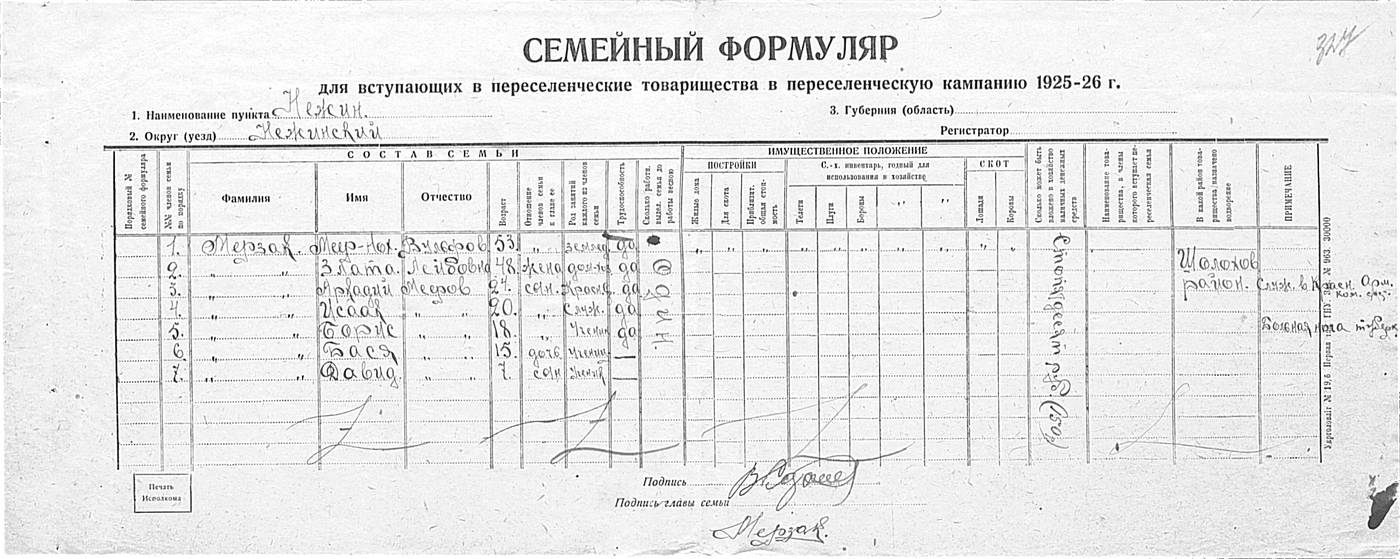 327
СЕМЕЙНЫЙ ФОРМУЛЯР
для вступающих в переселенческие товарищества в переселенческую кампанию 1925-26 г.
1. Наименование пункта Нежин.
3. Губерния (область)
2. Округ (уезд) Нежинский
Регистратор
Порядковый № семейного формуляра
СОСТАВ СЕМЬИ
№№ членов семьи по порядку
Фамилия
Имя
Отчество
Возраст
Отношение членов семьи к главе ее
Род занятий каждого из членов семьи
Трудоспособность
Сколько работн. выдел. семья до работы весною
ИМУЩЕСТВЕННОЕ ПОЛОЖЕНИЕ
ПОСТРОЙКИ
Жилые дома
Для скота
Приблизит. общая стоимость
С.-х. инвентарь, годный для использования в хозяйстве
Телеги
Плуги
Бороны
„
„
СКОТ
Лошади
Коровы
Сколько может быть вложено в хозяйство наличных денежных средств
Наименование товарищества, в члены которого вступает переселенческая семья
В какой район товарищества назначено водворение
ПРИМЕЧАНИЕ
1. Мерзак. Меер-Нох. Вульфов. 53. „ землед. да „ „ „ „ „ „ „ „ „ „
2. „ „ Злата. Лейбовна 48. жена дом-хоз. да Шолохов
3. „ „ Аркадий Мееров 24. сын. Красн. да район. Служ. в Красн. Арм.
4. „ „ Исаак „ „ 20. „ Служ. да
5. „ „ Борис „ „ 18. „ Ученик да Больная нога туберк.
6. „ „ Бася „ „ 15. дочь Учениц. —
7. „ „ Давид. „ „ 7. сын Ученик —
Один.
Стопятдесят руб. (150р)
Печать
Исполкома
Подпись
Подпись главы семьи
Мерзак.